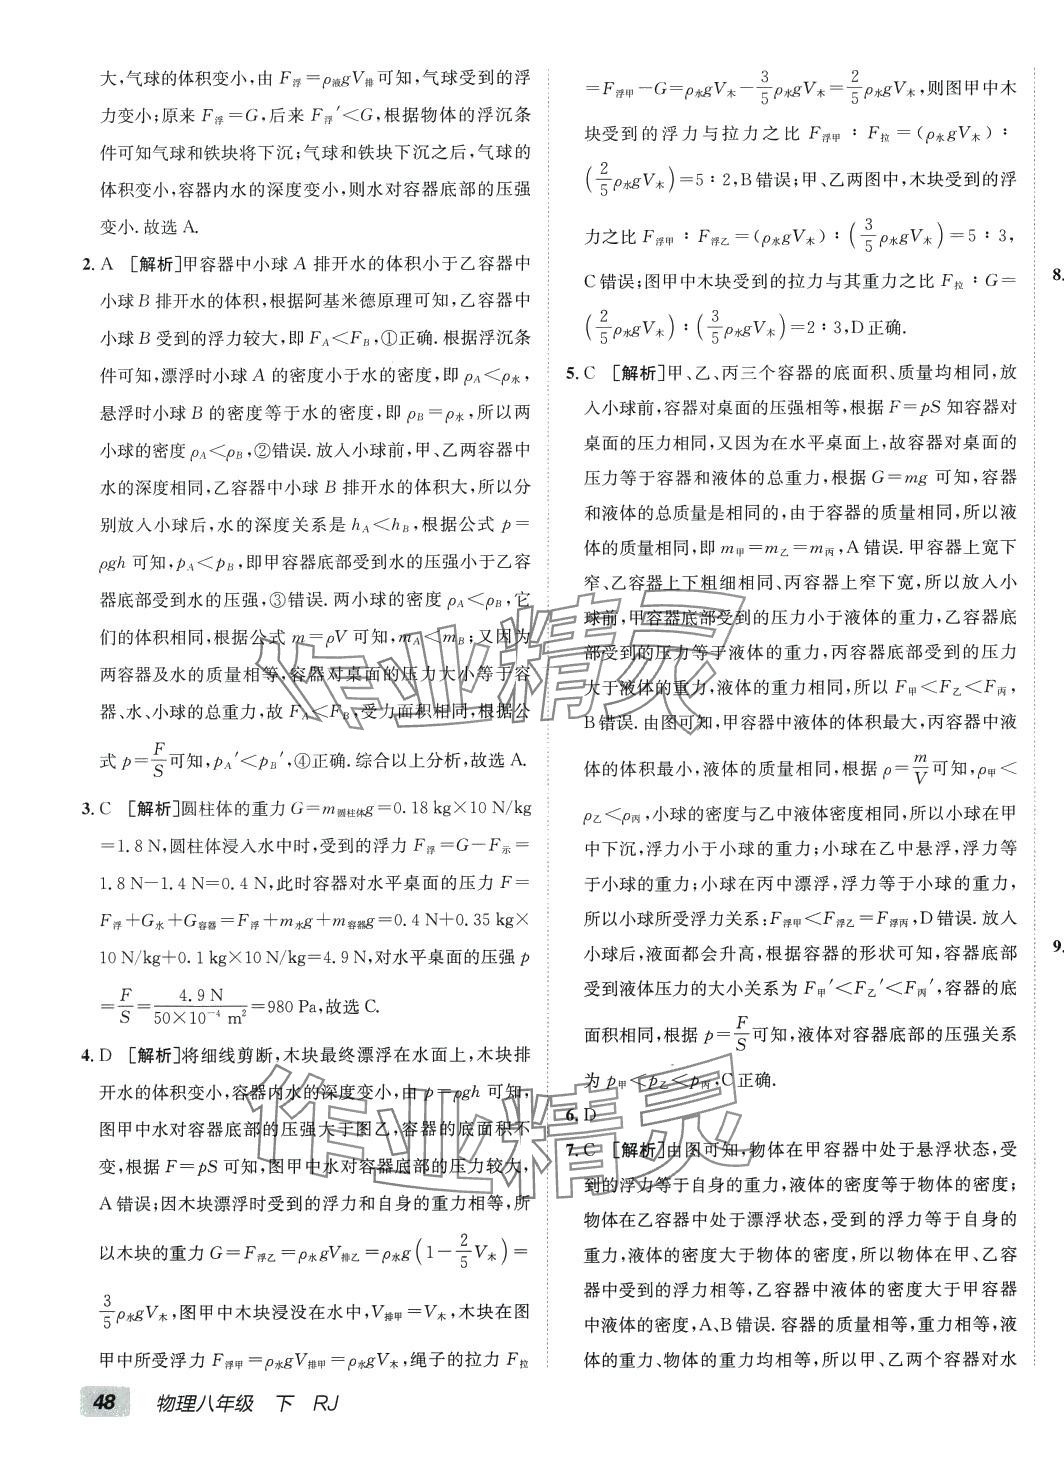 大,气球的体积变小,由 F浮=ρ液gV排 可知,气球受到的浮
力变小;原来 F浮=G,后来 F浮′<G,根据物体的浮沉条
件可知气球和铁块将下沉;气球和铁块下沉之后,气球的
体积变小,容器内水的深度变小,则水对容器底部的压强
变小.故选 A.
2. A [解析]甲容器中小球 A 排开水的体积小于乙容器中
小球 B 排开水的体积,根据阿基米德原理可知,乙容器中
小球 B 受到的浮力较大,即 FA<FB,①正确.根据浮沉条
件可知,漂浮时小球 A 的密度小于水的密度,即 ρA<ρ水,
悬浮时小球 B 的密度等于水的密度,即 ρB=ρ水,所以两
小球的密度 ρA<ρB,②错误.放入小球前,甲、乙两容器中
水的深度相同,乙容器中小球 B 排开水的体积大,所以分
别放入小球后,水的深度关系是 hA<hB,根据公式 p=
ρgh 可知,pA<pB,即甲容器底部受到水的压强小于乙容
器底部受到水的压强,③错误.两小球的密度 ρA<ρB,它
们的体积相同,根据公式 m=ρV 可知,mA<mB;又因为
两容器及水的质量相等,容器对桌面的压力大小等于容
器、水、小球的总重力,故 FA<FB,受力面积相同,根据公
式 p=F/S可知,pA′<pB′,④正确.综合以上分析,故选 A.
3. C [解析]圆柱体的重力 G=m圆柱体g=0.18 kg×10 N/kg
=1.8 N,圆柱体浸入水中时,受到的浮力 F浮=G-F示=
1.8 N-1.4 N=0.4 N,此时容器对水平桌面的压力 F=
F浮+G水+G容器=F浮+m水g+m容器g=0.4 N+0.35 kg×
10 N/kg+0.1 kg×10 N/kg=4.9 N,对水平桌面的压强 p
=F/S=4.9 N/(50×10⁻⁴ m²)=980 Pa,故选 C.
4. D [解析]将细线剪断,木块最终漂浮在水面上,木块排
开水的体积变小,容器内水的深度变小,由 p=ρgh 可知,
图甲中水对容器底部的压强大于图乙,容器的底面积不
变,根据 F=pS 可知,图甲中水对容器底部的压力较大,
A 错误;因木块漂浮时受到的浮力和自身的重力相等,所
以木块的重力 G=F浮乙=ρ水gV排乙=ρ水g(1-2/5V木)=
3/5ρ水gV木,图甲中木块浸没在水中,V排甲=V木,木块在图
甲中所受浮力 F浮甲=ρ水gV排甲=ρ水gV木,绳子的拉力 F拉
=F浮甲-G=ρ水gV木-3/5ρ水gV木=2/5ρ水gV木,则图甲中木
块受到的浮力与拉力之比 F浮甲∶F拉=(ρ水gV木)∶
(2/5ρ水gV木)=5∶2,B 错误;甲、乙两图中,木块受到的浮
力之比 F浮甲∶F浮乙=(ρ水gV木)∶(3/5ρ水gV木)=5∶3,
C 错误;图甲中木块受到的拉力与其重力之比 F拉∶G=
(2/5ρ水gV木)∶(3/5ρ水gV木)=2∶3,D 正确.
5. C [解析]甲、乙、丙三个容器的底面积、质量均相同,放
入小球前,容器对桌面的压强相等,根据 F=pS 知容器对
桌面的压力相同,又因为在水平桌面上,故容器对桌面的
压力等于容器和液体的总重力,根据 G=mg 可知,容器
和液体的总质量是相同的,由于容器的质量相同,所以液
体的质量相同,即 m甲=m乙=m丙,A 错误.甲容器上宽下
窄、乙容器上下粗细相同、丙容器上窄下宽,所以放入小
球前,甲容器底部受到的压力小于液体的重力,乙容器底
部受到的压力等于液体的重力,丙容器底部受到的压力
大于液体的重力,液体的重力相同,所以 F甲<F乙<F丙,
B 错误.由图可知,甲容器中液体的体积最大,丙容器中液
体的体积最小,液体的质量相同,根据 ρ=m/V可知,ρ甲<
ρ乙<ρ丙,小球的密度与乙中液体密度相同,所以小球在甲
中下沉,浮力小于小球的重力;小球在乙中悬浮,浮力等
于小球的重力;小球在丙中漂浮,浮力等于小球的重力,
所以小球所受浮力关系:F浮甲<F浮乙=F浮丙,D 错误.放入
小球后,液面都会升高,根据容器的形状可知,容器底部
受到液体压力的大小关系为 F甲′<F乙′<F丙′,容器的底
面积相同,根据 p=F/S可知,液体对容器底部的压强关系
为 p甲<p乙<p丙,C 正确.
6. D
7. C [解析]由图可知,物体在甲容器中处于悬浮状态,受
到的浮力等于自身的重力,液体的密度等于物体的密度;
物体在乙容器中处于漂浮状态,受到的浮力等于自身的
重力,液体的密度大于物体的密度,所以物体在甲、乙容
器中受到的浮力相等,乙容器中液体的密度大于甲容器
中液体的密度,A、B 错误.容器的质量相等,重力相等,液
体的重力、物体的重力均相等,所以甲、乙两个容器对水
8.
9.
作业精灵
作业精灵
48 物理八年级 下 RJ